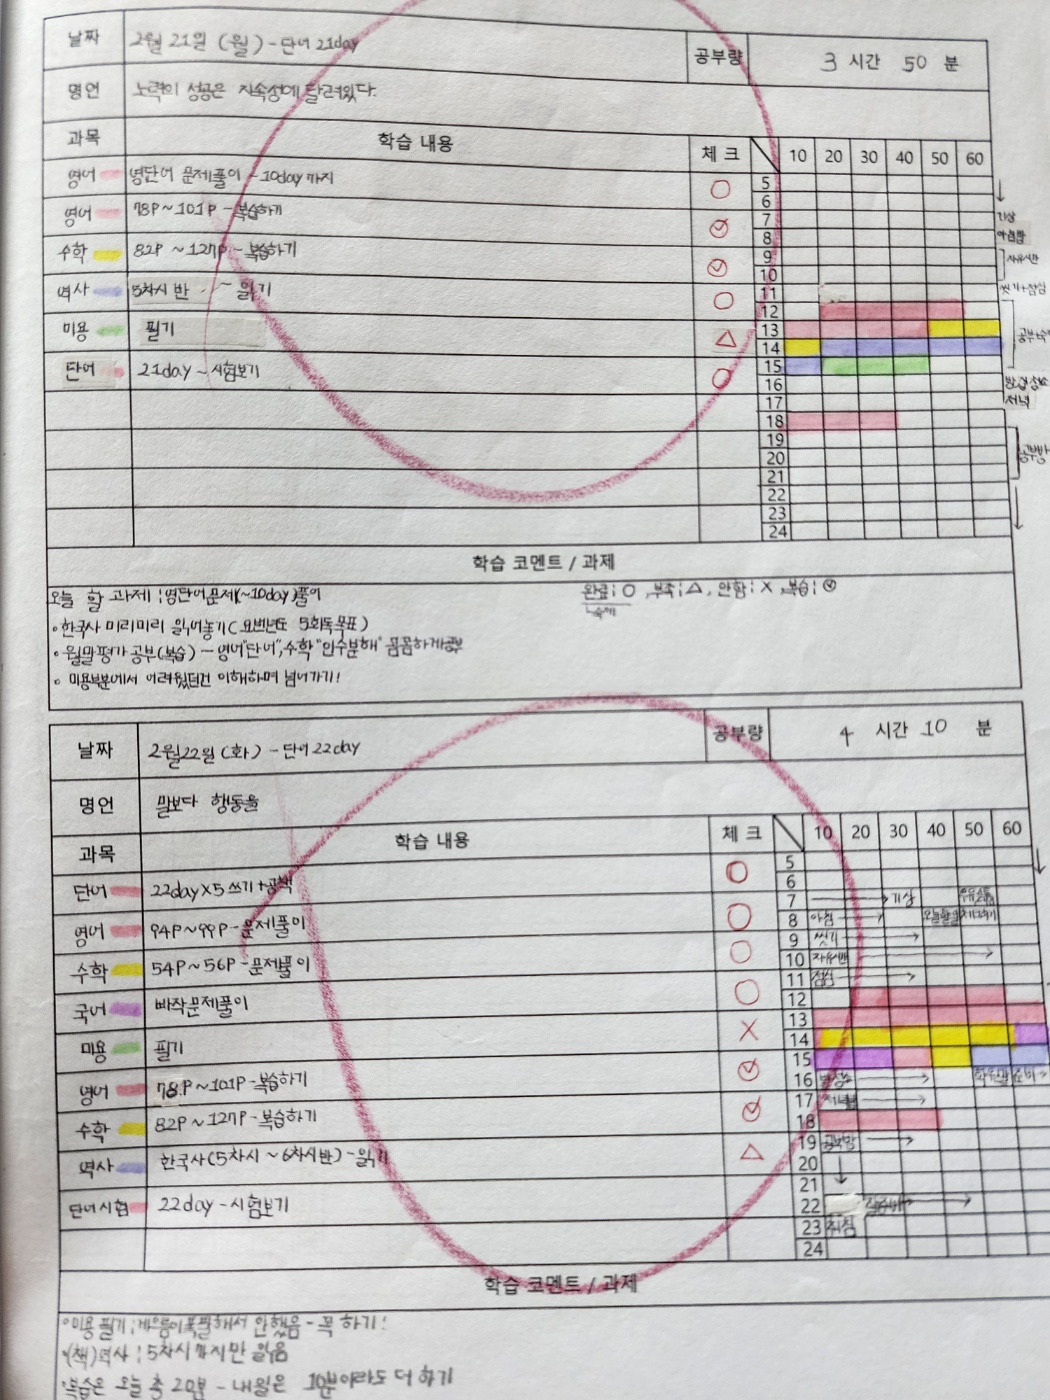 날짜 2월 21일 (월) - 단어 21day 공부량 3 시간 50 분
명언 노력의 성공은 지속성에 달려있다.
과목 학습 내용 체 크 10 20 30 40 50 60
영어 영단어 문제풀이 ~10day까지 ○
영어 78P~101P - 복습하기
수학 82P ~127P - 복습하기
역사 5차시 반 ~ 읽기 ○
미용 필기 △
단어 21day - 시험보기 ○
5
6
7 기상
8 아침밥
9 자유시간
10
11 씻기+점심
12
13
14
15
16
17 저녁
18
19
20 공부방
21
22
23
24
학습 코멘트 / 과제
오늘 할 과제 : 영단어문제(~10day)풀이 완료 : ○, 부족 : △, 안함 : X, 복습 :
• 한국사 미리미리 읽어놓기( 5회독목표)
• 월말평가 공부(복습) - 영어"단어", 수학"인수분해" 꼼꼼하게공부
• 미용부분에서 어려웠던건 이해하며 넘어가기!
날짜 2월22일(화) - 단어 22day 공부량 4 시간 10 분
명언 말보다 행동을
과목 학습 내용 체 크 10 20 30 40 50 60
단어 22day X5 쓰기+공책 ○
영어 94P~99P - 문제풀이 ○
수학 54P~56P - 문제풀이 ○
국어 빠작문제풀이 ○
미용 필기 X
영어 78P~101P - 복습하기
수학 82P~127P - 복습하기
역사 한국사(5차시~6차시반) - 읽기 △
단어시험 22day - 시험보기
5
6
7 기상
8 아침
9 씻기
10 자유시간
11 점심
12
13
14
15
16
17
18
19 공부방
20
21
22 잘준비
23 취침
24
학습 코멘트 / 과제
• 미용 필기 : 게으름이폭팔해서 안했음 - 꼭 하기!
(책)역사 : 5차시까지만 읽음
복습은 오늘 총 20분 - 내일은 10분이라도 더 하기